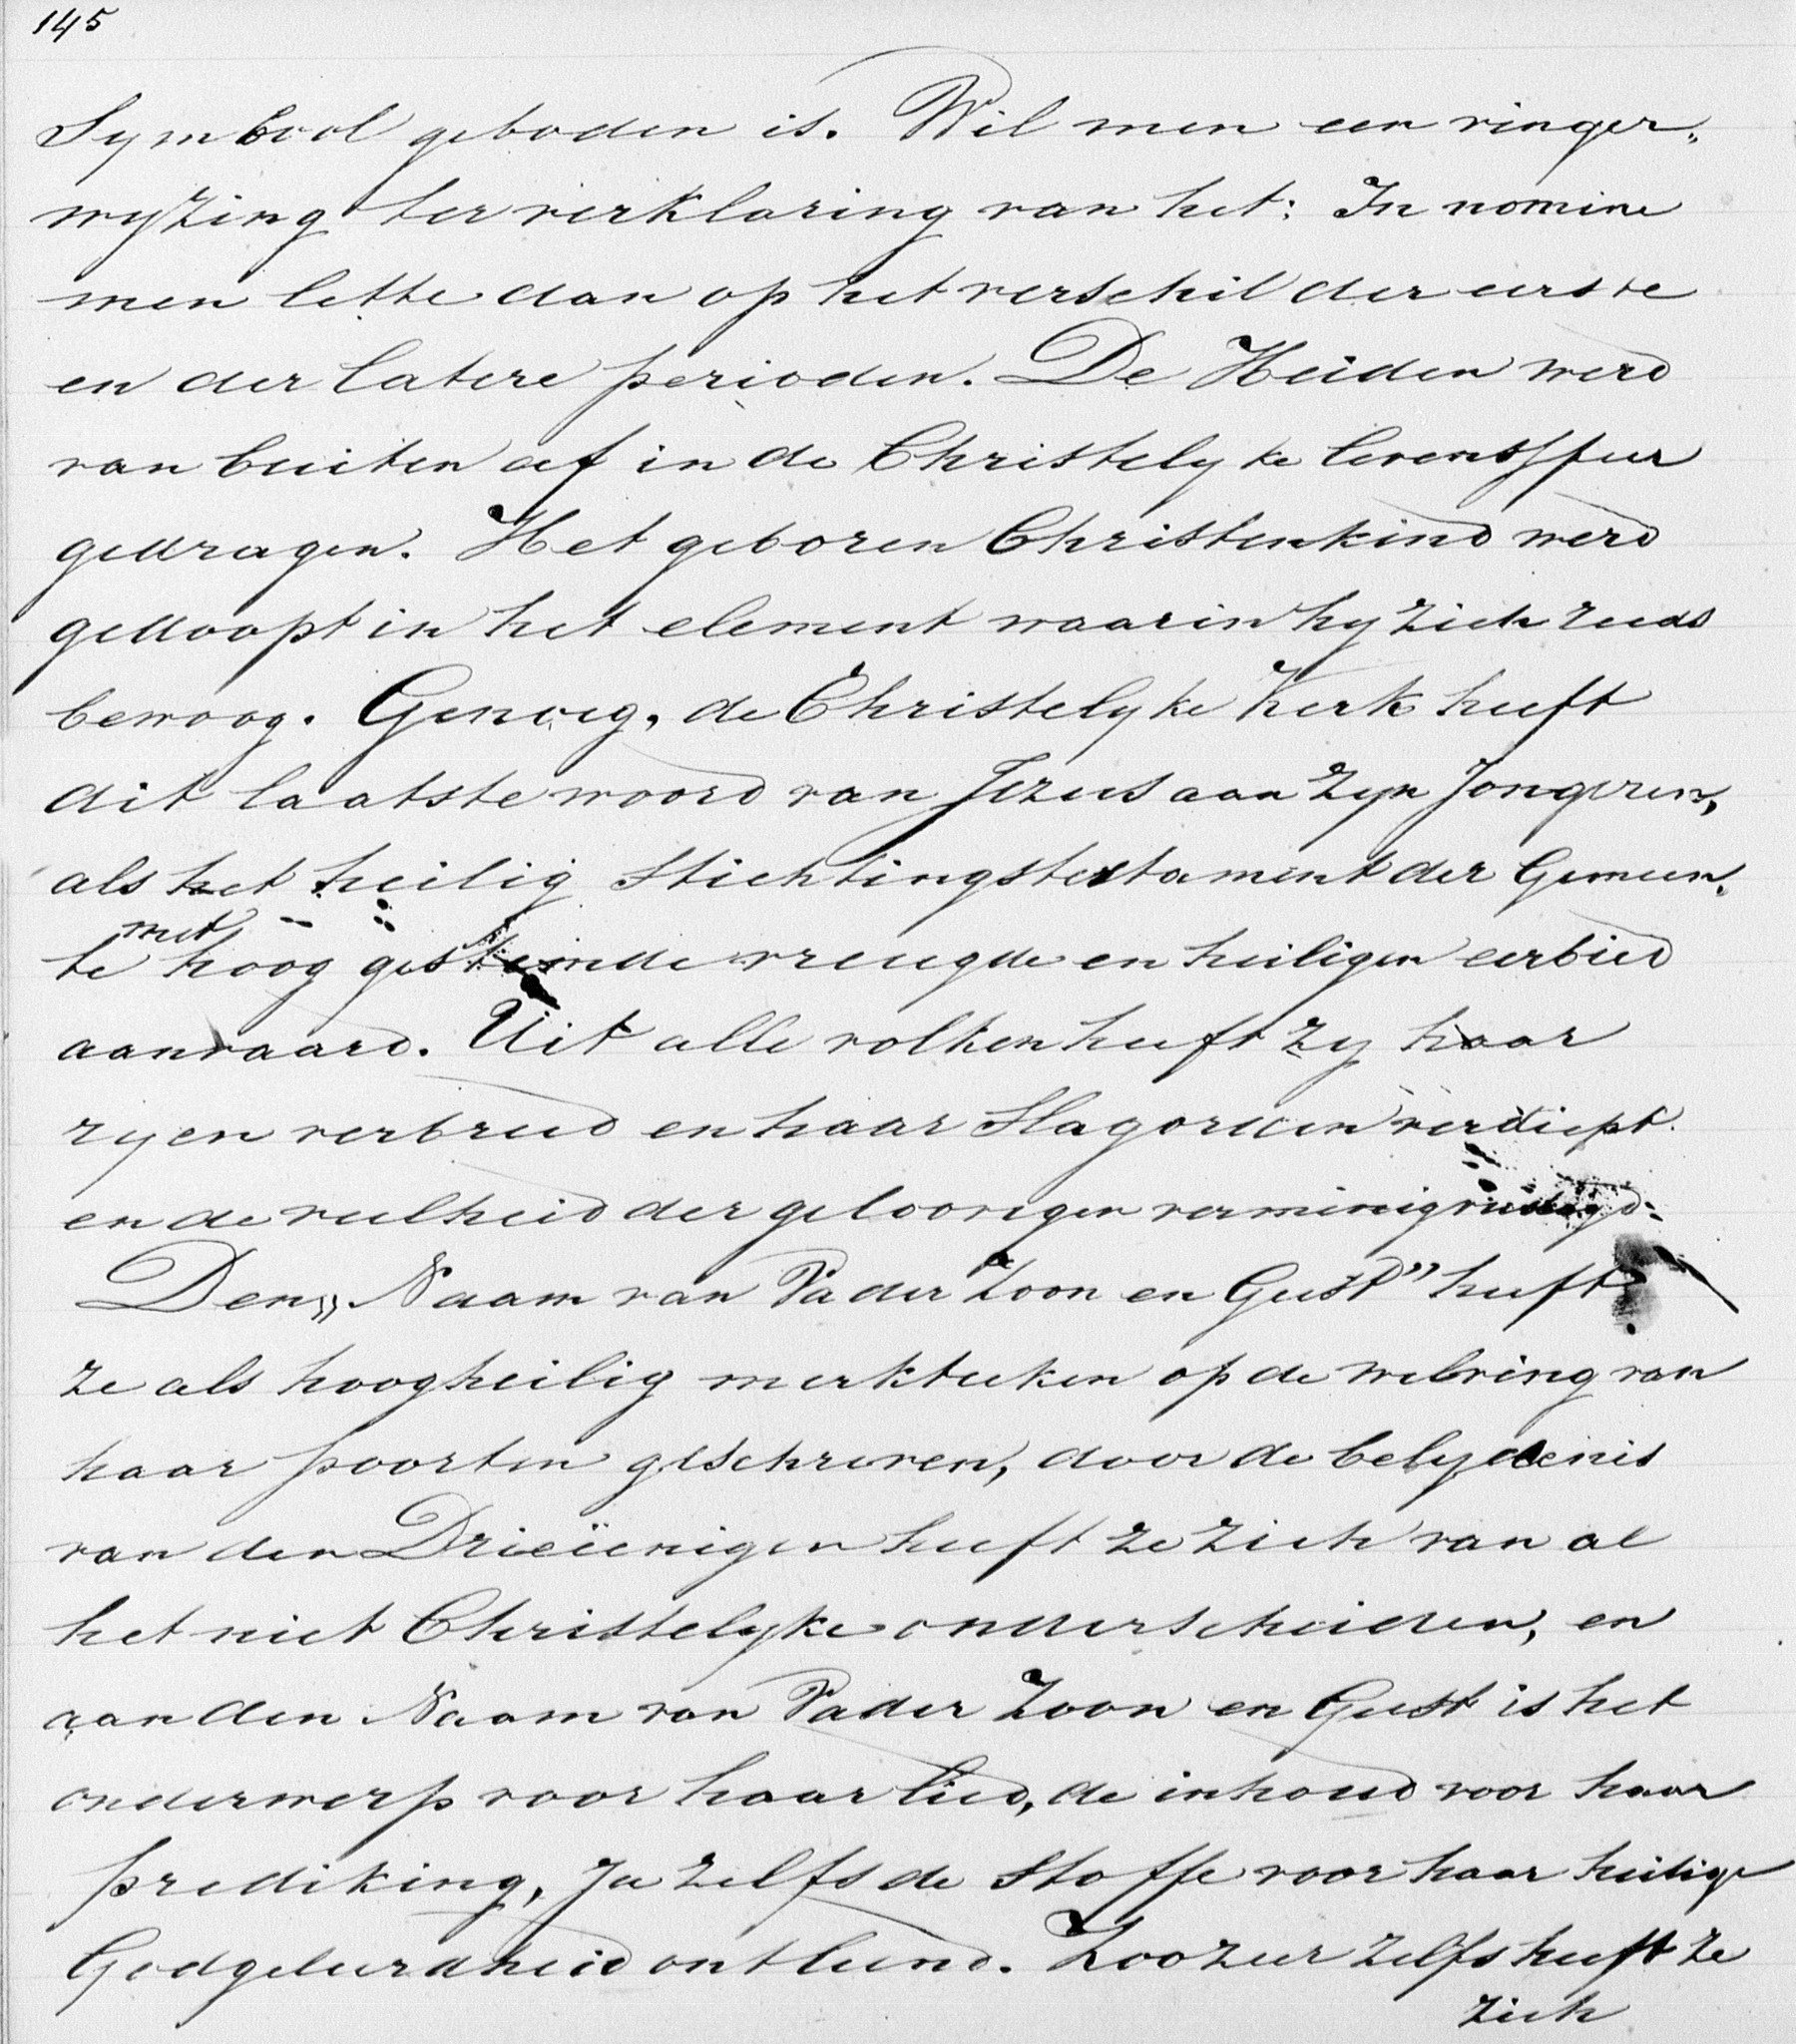 145
Symbool geboden is. Wil men een vinger„
wyzing ter verklaring van het: In nomine
men lette dan op het verschil der eerste
en der latere perioden. De Heiden werd
van buiten af in de Christelyke levenssfeer
gedragen. Het geboren Christenkind werd
gedoopt in het element waarin hy zich reeds
bewoog. Genoeg, de Christelyke Kerk heeft
dit laatste woord van Jezus aan zyn Jongeren,
als het heilig Stichtingstestament der Gemeen„
te met hoog gestemde vreugde en heiligen eerbied
aanvaard. Uit alle volken heeft zy haar
ryen verbreed en haar Slagorden verdiept.
en de veelheid der geloovigen vermenigvuldigd:
Den „Naam van Vader Zoon en Geest" heeft
ze als hoogheilig merkteeken op de welving van
haar poorten geschreven, door de belydenis
van den Drieëenigen heeft ze zich van al
het niet Christelyke onderscheiden, en
aan den Naam van Vader Zoon en Geest is het
onderwerp voor haar lied, de inhoud voor haar
prediking, Ja zelfs de Stoffe voor haar heilige
Godgeleerdheid ontleend. Zoozeer zelfs heeft ze
zich